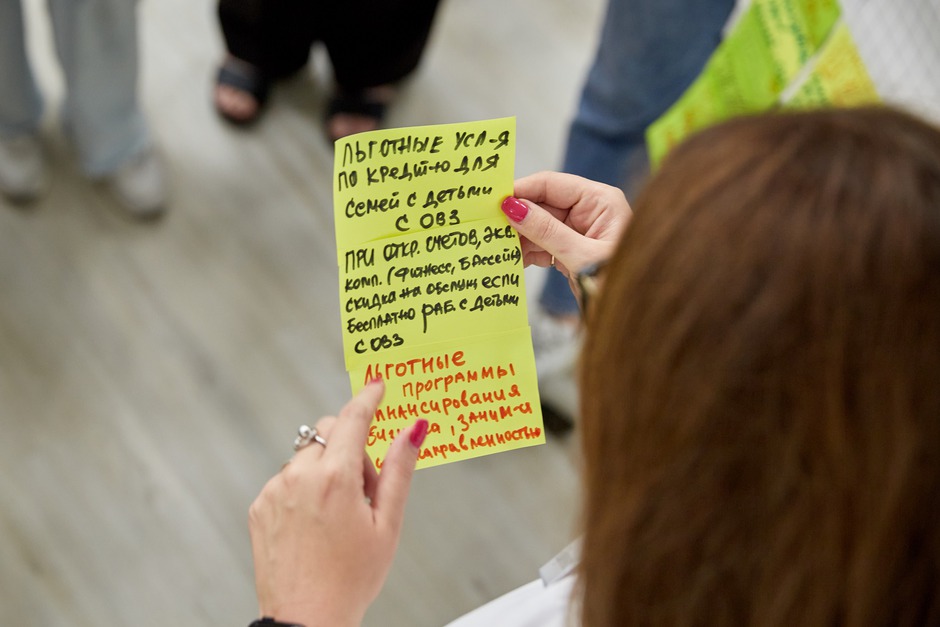 ЛЬГОТНЫЕ УСЛ-Я
ПО КРЕДИТ-Ю ДЛЯ
СЕМЕЙ С ДЕТЬМИ
С ОВЗ
ПРИ ОТКР. СЧЕТОВ, ЭКВ.
КОМП. (ФИТНЕС, БАССЕЙН)
СКИДКА НА ОБСЛУЖ ЕСЛИ
БЕСПЛАТНО РАБ. С ДЕТЬМИ
С ОВЗ
ЛЬГОТНЫЕ
ПРОГРАММЫ
ФИНАНСИРОВАНИЯ
БИЗНЕСА, ЗАНИМ-И